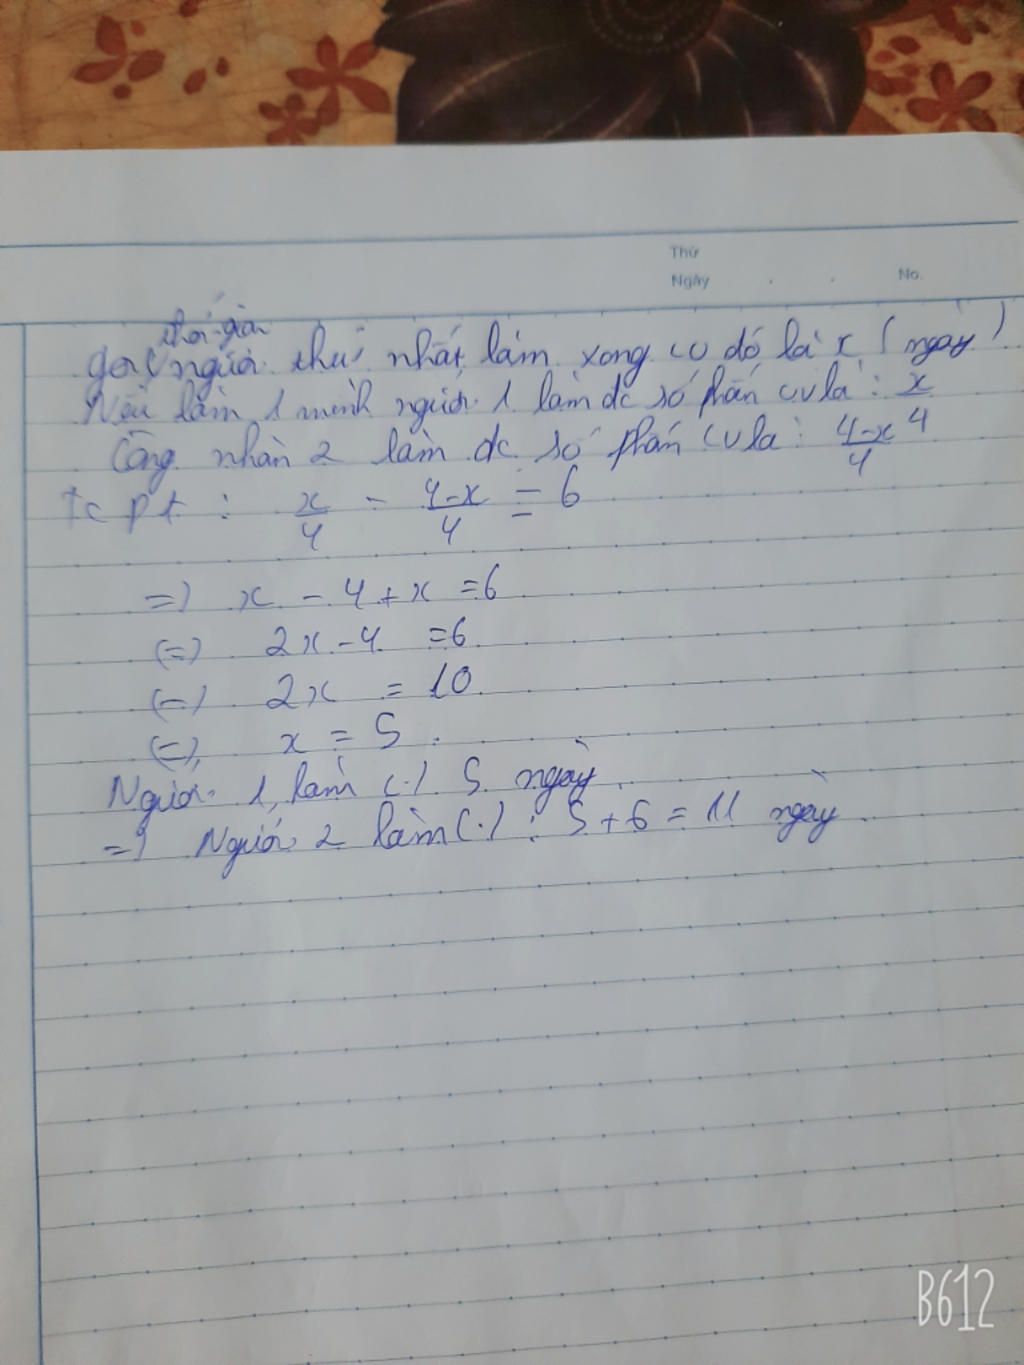 Thứ
Ngày
No.
thời gian
gọi người thứ nhất làm xong cv đó là x (ngày)
Nếu làm 1 mình người 1 làm đc số phần cv là: x/4
Công nhân 2 làm đc số phần cv là: 4-x/4
tc pt : x/4 - 4-x/4 = 6
=) x - 4 + x = 6
(=) 2x - 4 = 6
(=) 2x = 10
(=) x = 5.
Người 1 làm (.) 5 ngày.
=) Người 2 làm (.) : 5 + 6 = 11 ngày
B612